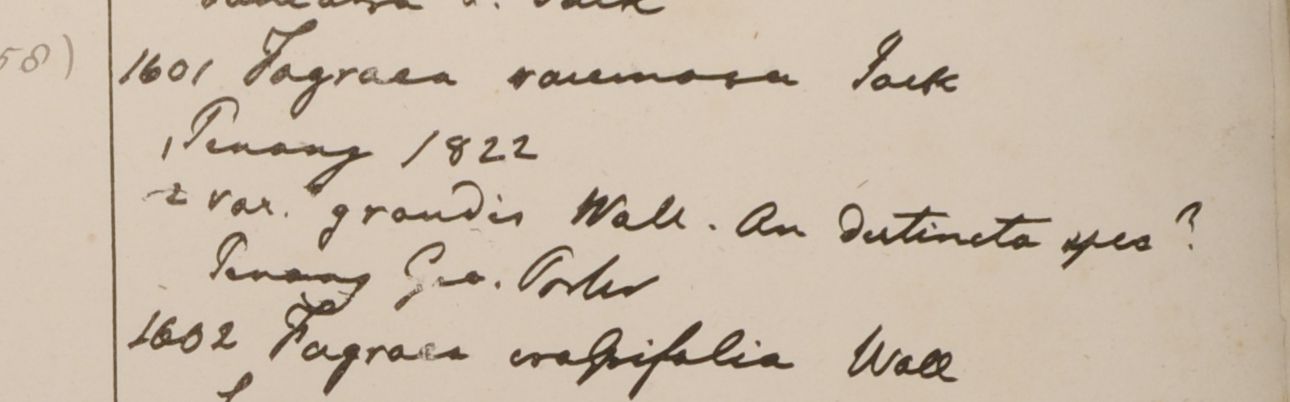 Jack
58)
1601 Fagraea racemosa Jack
1 Penang 1822
2 var. grandis Wall. An distincta spec?
Penang Geo. Porter
1602 Fagraea crassifolia Wall